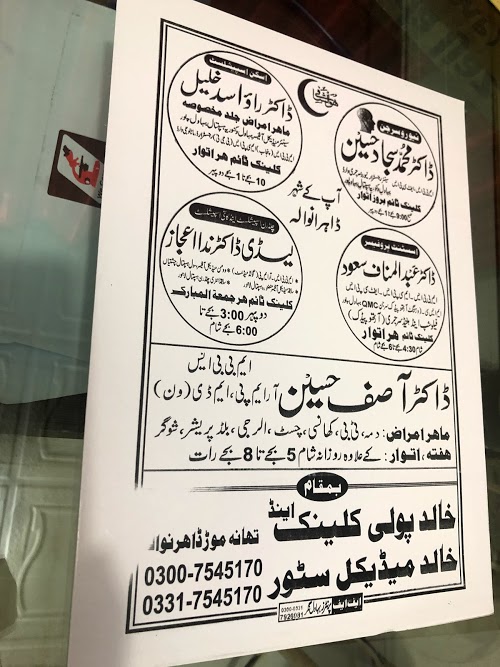 ھوالشافی
اسکن اسپیشلسٹ
ڈاکٹر راؤ اسد خلیل
ماہر امراض جلد مخصوصہ
کلینک ٹائم ھر اتوار
10 بجے تا 1 بجے دوپہر
نیوروسرجن
ڈاکٹر محمد سجاد حسین
کلینک ٹائم بروز اتوار
آپ کے شہر
ڈاہرانوالہ
لیڈی ڈاکٹر ندا اعجاز
کلینک ٹائم ھر جمعة المبارک
دوپہر 3:00 بجے تا
6:00 بجے شام
اسسٹنٹ پروفیسر
ڈاکٹر عبدالمناف سعود
کلینک ٹائم ھر اتوار
شام 4:30 بجے تا 6 بجے شام
ڈاکٹر آصف حسین ایم بی بی ایس
آر ایم پی، ایم ڈی (ون)
ماہر امراض: دمہ، ٹی بی، کھانسی، چسٹ، الرجی، بلڈ پریشر، شوگر
ھفتہ، اتوار: کے علاوہ روزانہ شام 5 بجے تا 8 بجے رات
بمقام
خالد پولی کلینک اینڈ
خالد میڈیکل سٹور
تھانہ موڑ ڈاھرنوالہ
0300-7545170
0331-7545170
ایف ایف پرنٹرز بہاولنگر